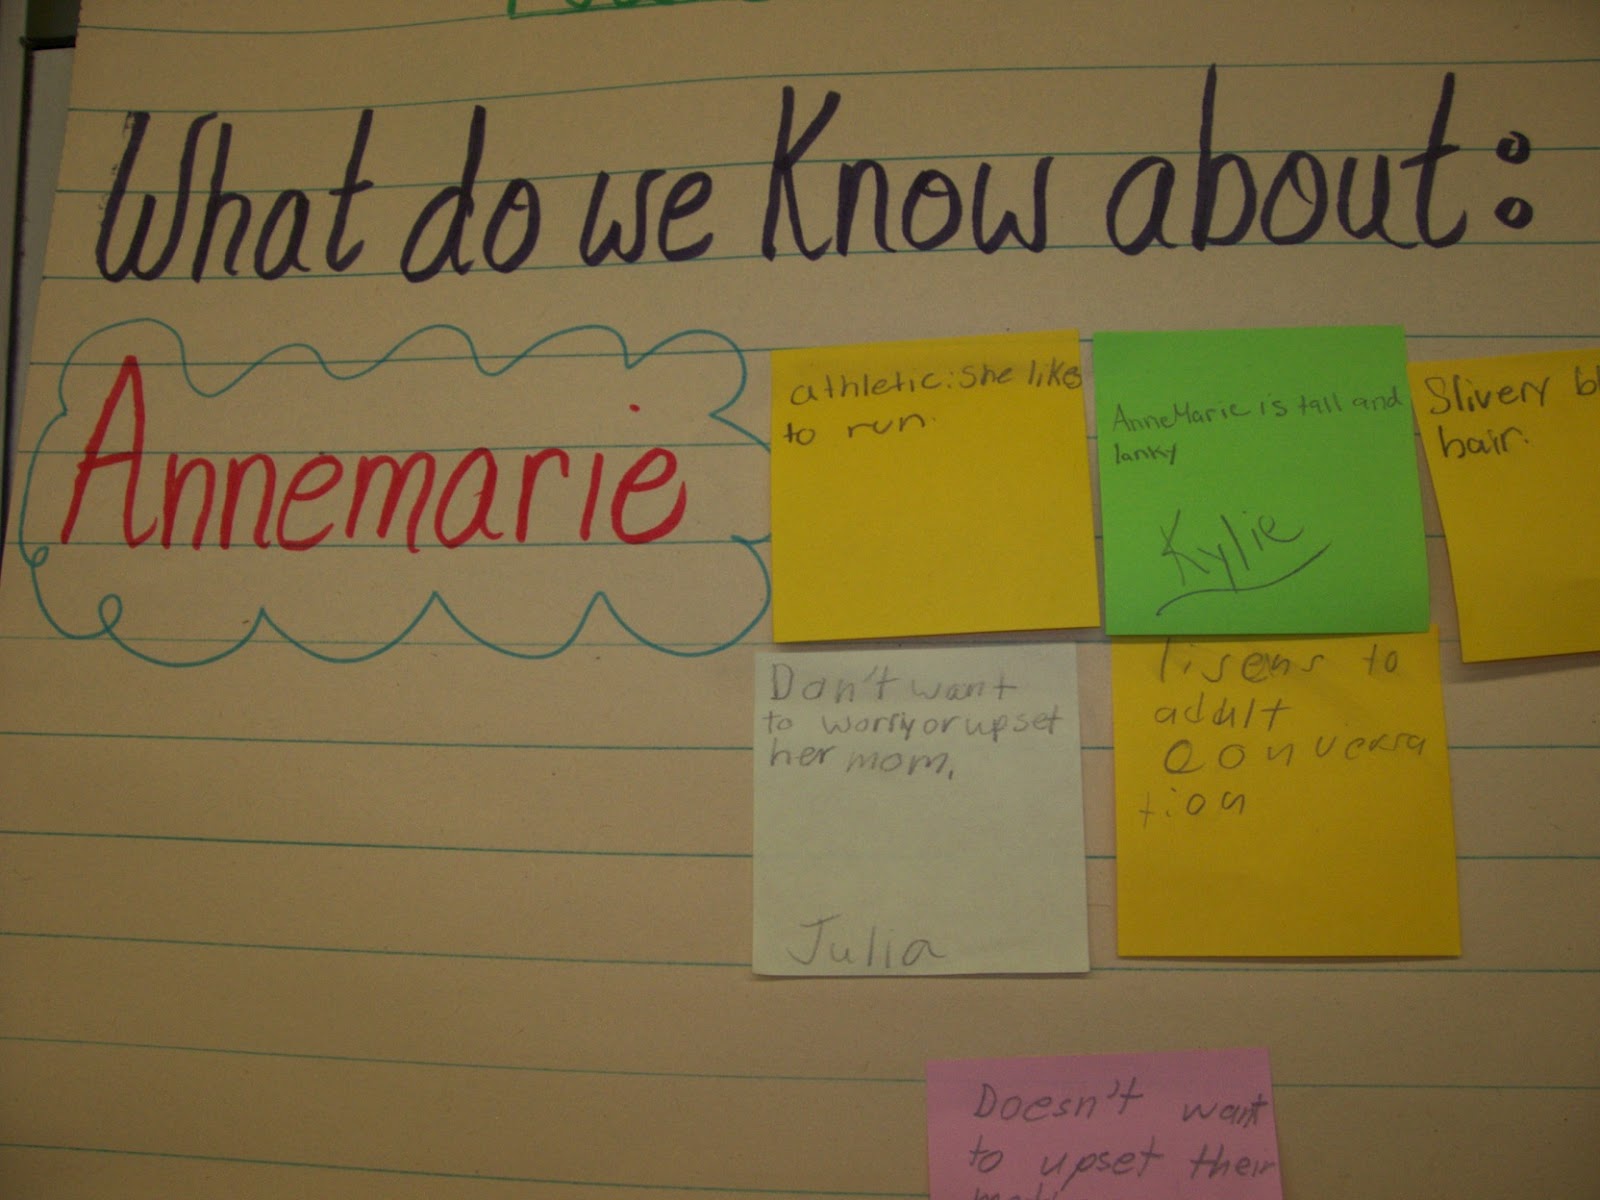 What do we know about:
Annemarie
athletic: she likes
to run.
AnneMarie is tall and
lanky
Kylie
Slivery
hair.
Don't want
to worry or upset
her mom.
Julia
lisens to
adult
conversa
tion
Doesn't want
to upset their